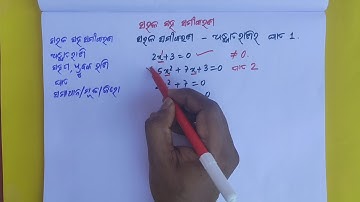 ସରଳ ସହ ସମୀକରଣ
ସରଳ ସହ ସମୀକରଣ
ସରଳ ସମୀକରଣ - ଅଜ୍ଞାତରାଶିର ଘାତ 1.
ଅଜ୍ଞାତରାଶି
2x+3=0 ≠0.
5x²+7x+3=0 ଘାତ 2
ଘାତ
² + 7 = 0
ସମାଧାନ/ମୂଳ/ବୀଜ
= 0